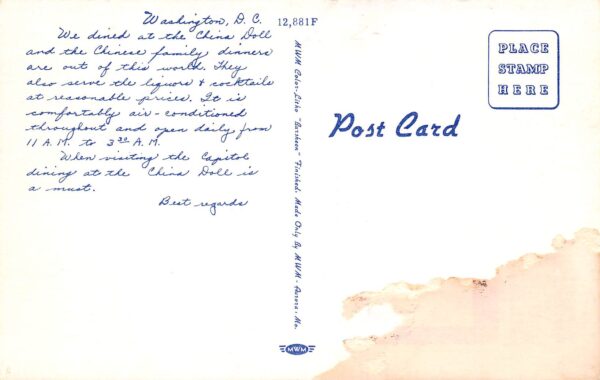 Washington, D. C.
We dined at the China Doll
and the Chinese family dinners
are out of this world. They
also serve the liquors & cocktails
at reasonable prices. It is
comfortably air-conditioned
throughout and open daily from
11 A.M. to 3 30 A.M.
When visiting the Capitol
dining at the China Doll is
a must.
Best regards
12,881F
MWM Color-Litho "Barkeen" Finished. Made Only By MWM - Aurora, Mo.
MWM
Post Card
PLACE
STAMP
HERE